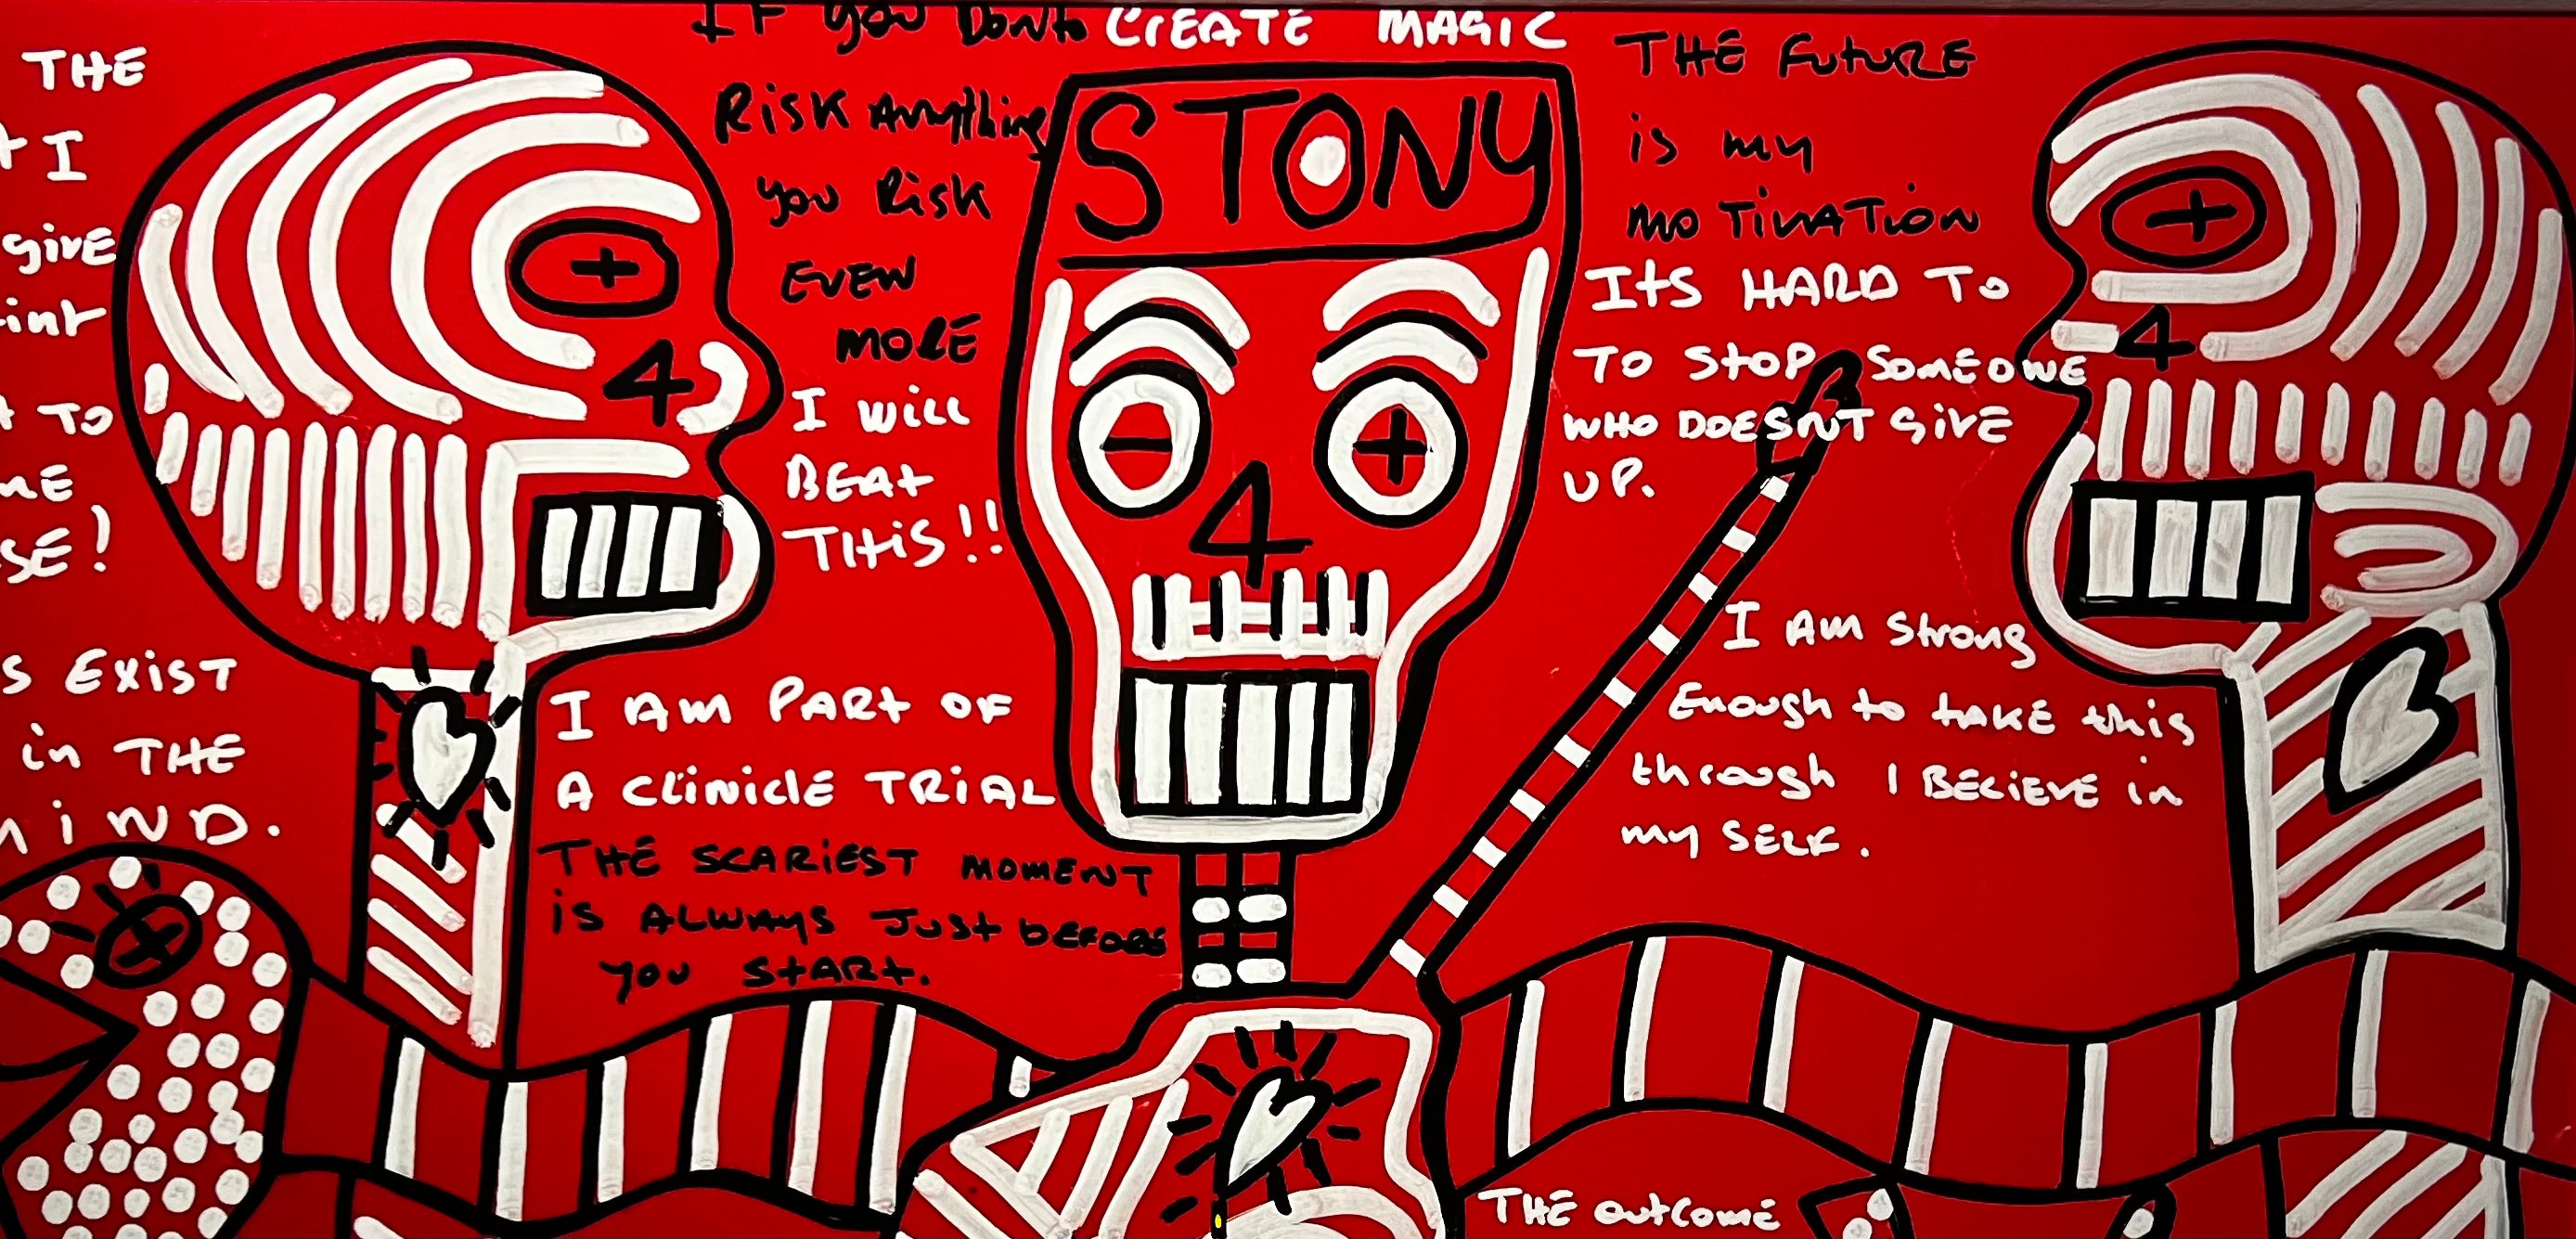 THE
I
give
TO
SE!
S EXIST
in THE
MIND.
IF you Dont
RiSK Anything
you Risk
EVEN
MORE
CREATE MAGIC
STONY
4
4
4
I WiLL
BEAt
THiS!!
I AM PARt OF
A CLiNiClE TRiAL
THE SCARiEST MOMENT
iS ALWAYS JUSt bEFORE
you StARt.
THE FuTuRE
is my
moTiVATiON
ItS HARD To
To StoP SOMEONE
WHO DOESNT GiVE
UP.
I AM Strong
Enough to tAKE this
through I BELiEVE in
my SELF.
THE outcome